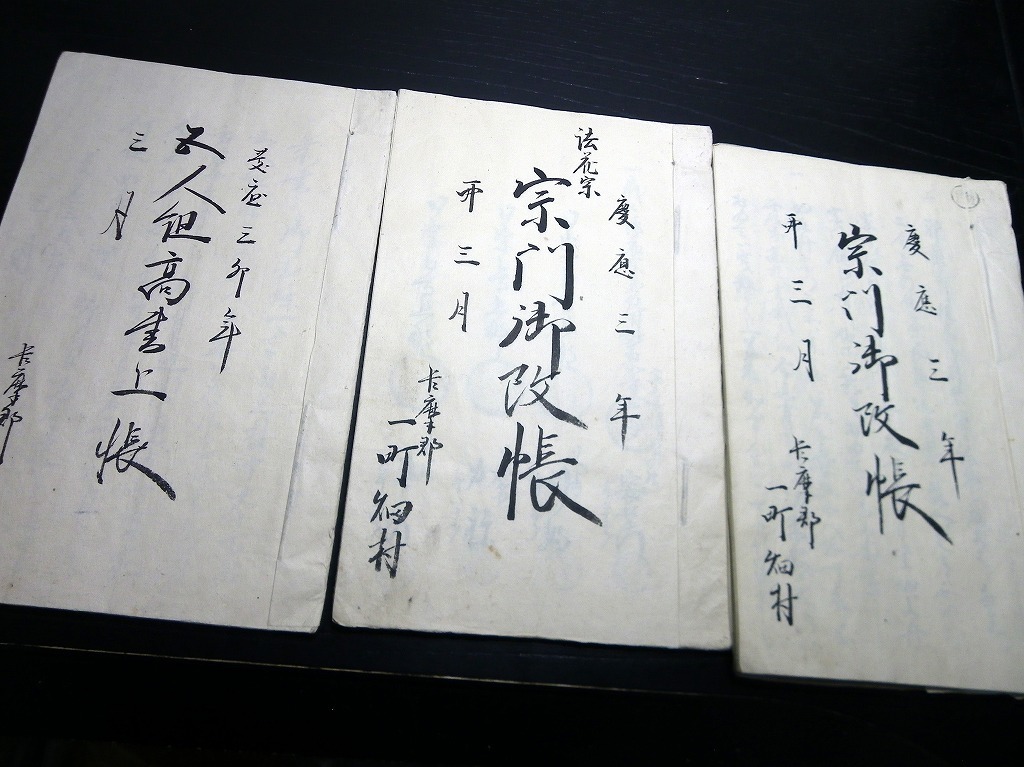 慶應三年
宗門御改帳
卯三月
摩郡
一町畑村
慶應三年
法花宗
宗門御改帳
卯三月
摩郡
一町畑村
慶應三卯年
五人組高書上帳
三月
摩郡